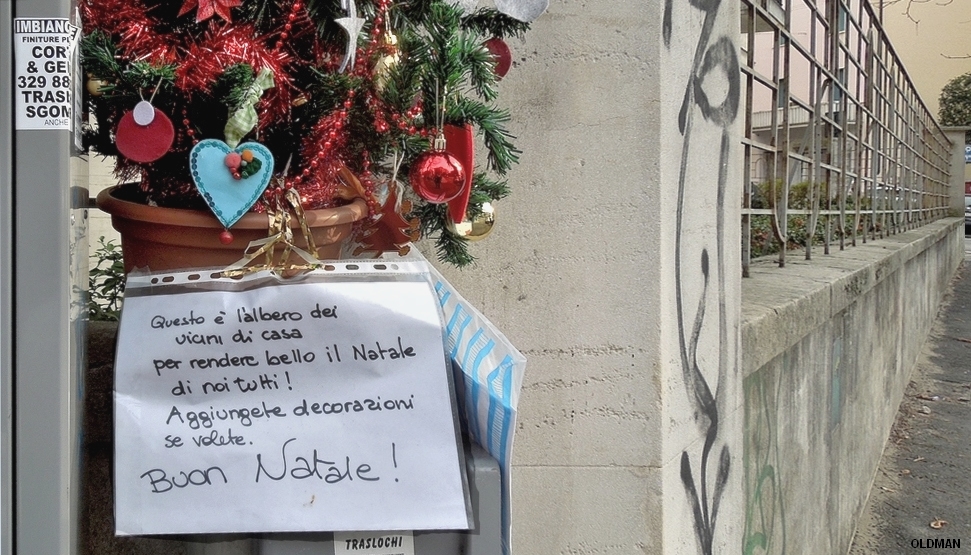 IMBIANC
FINITURE P
COR
& GE
329 88
TRAS
SGOM
ANCHE
Questo è l'albero dei
vicini di casa
per rendere bello il Natale
di noi tutti!
Aggiungete decorazioni
se volete.
Buon Natale!
TRASLOCHI
OLDMAN